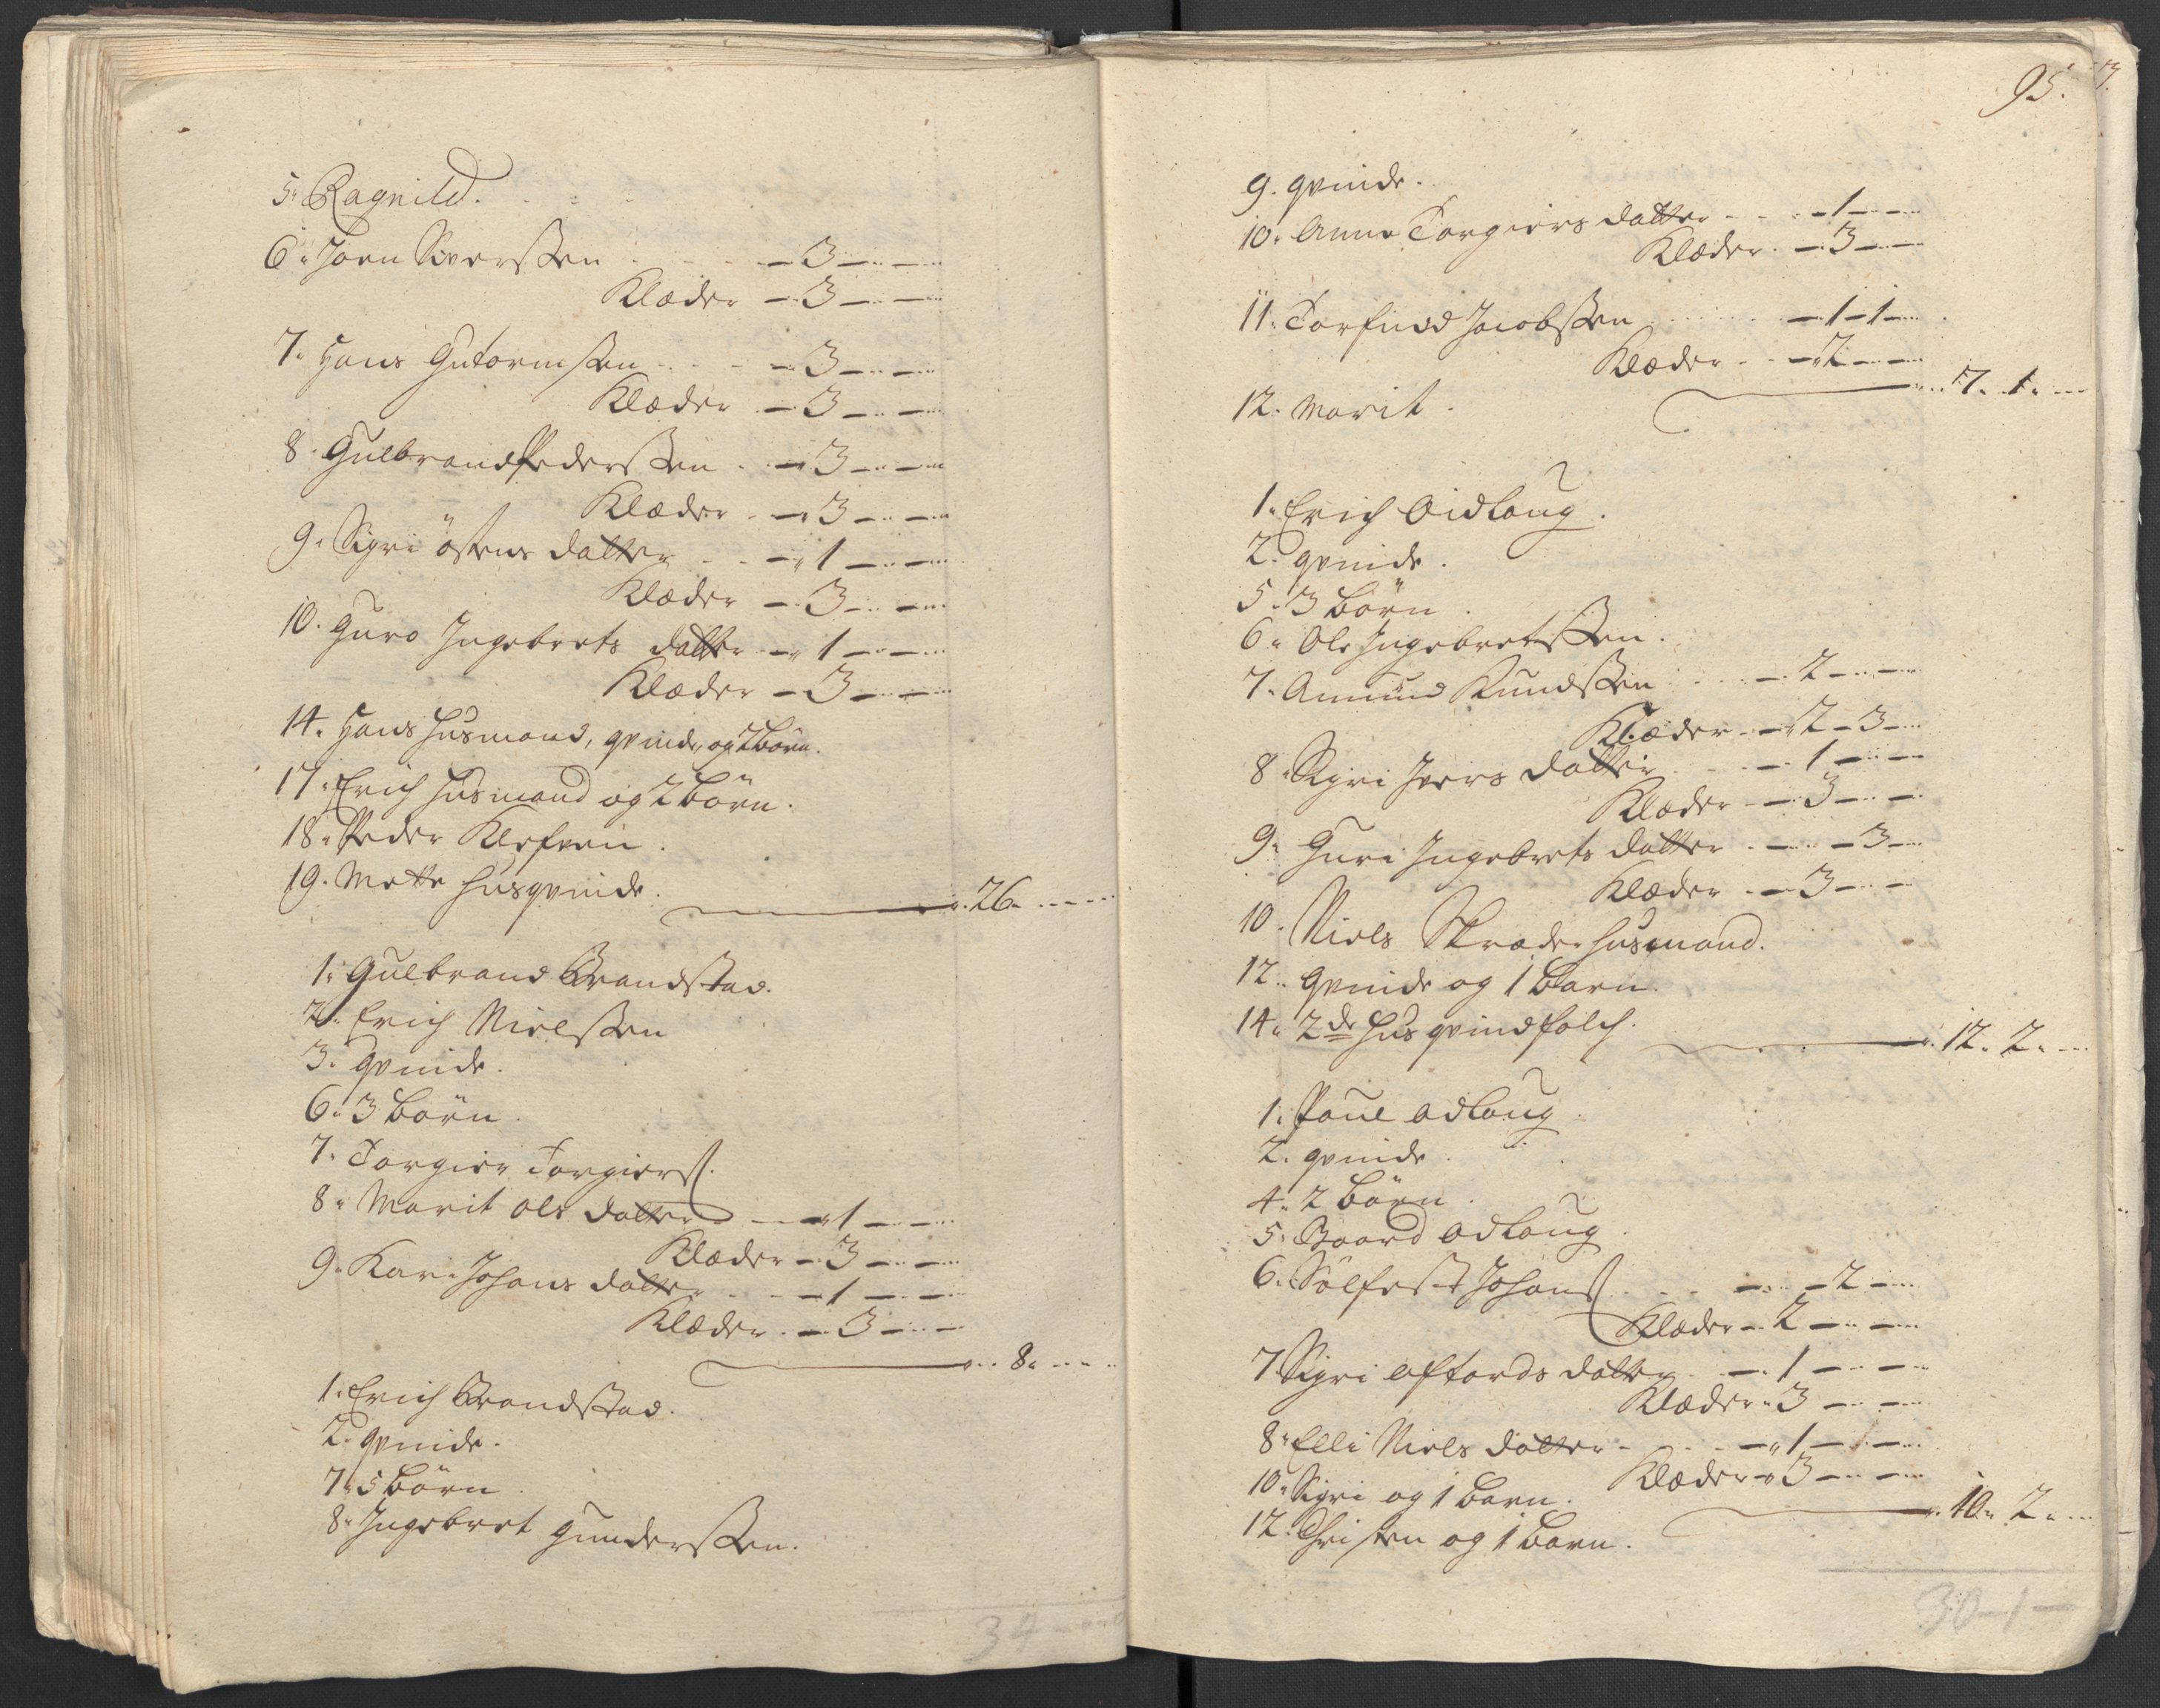 5. Ragnild.
6. Joen Siverssen - 3 - -
Klæder - 3 - -
7. Hans Gutormssen - 3 - -
Klæder - 3 - -
8. Gulbrand Pederssen - 3 - -
Klæder - 3 - -
9. Sigri östens datter - 1 - -
Klæder - 3 - -
10. Guro Ingebrets datter - 1 - -
Klæder - 3 - -
14. Hans Husmand, qvinde, og 2 börn.
17. Erich Husmand og 2 börn.
18. Peder Klefven.
19. Mette Husqvinde.
26 - -
1. Gulbrand Brandstad.
2. Erich Nielssen
3. qvinde.
6. 3 börn.
7. Torgier Torgierss.
8. Marit ols datter - 1 - -
Klæder - 3 - -
9. Kari Johans datter - 1 - -
Klæder - 3 - -
8 - -
1. Erich Brandstad.
2. qvinde.
7. 5 börn.
8. Ingebret Gunderssen.
34 - -
95.
9. qvinde.
10. Anne Torgiers datter - 1 - -
Klæder - 3 - -
11. Torfind Jacobssen - 1 - 1 -
Klæder - 2 - -
7. 1. -
12. Marit.
1. Erich Oidlaug.
2. qvinde.
5. 3 börn.
6. Ole Ingebretssen.
7. Amund Knudssen - 2 - -
Klæder - 2 - 3 -
8. Sigri Ivers datter - 1 - -
Klæder - 3 - -
9. Guri Ingebrets datter - - 3 -
Klæder - 3 - -
10. Niels Skræder Husmand.
12. qvinde og 1 barn.
14. 2de Husqvindfolch.
12. 2. -
1. Poul odlaug.
2. qvinde.
4. 2 börn.
5. Baard odlaug.
6. Sölfest Johanss. - - 2 -
Klæder - 2 - -
7. Sigri datter - 1 - -
Klæder - 3 - -
8. Elli Niels datter - 1 - -
Klæder - 3 - -
10. Sigri og 1 barn.
10. 2. -
12. Christen og 1 barn.
30 - 1 -